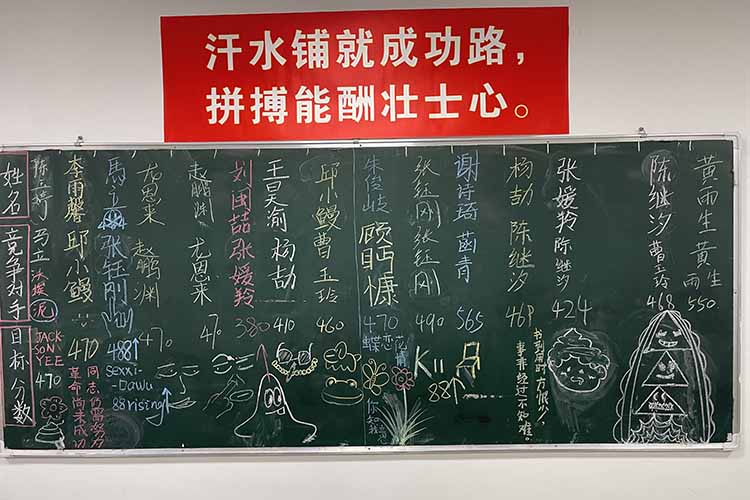 汗水铺就成功路，
拼搏能酬壮士心。
姓名
竞争对手
目标分数
马立
JACK-
SONYEE
470
李雨馨
邱小鳗
470
革命尚未成功
同志仍需努力
張鈺刚
488↑
sexxi-
-Dawu
88rising
龙恩来
赵鹏渊
470
赵鹏渊
龙恩来
470
刘国喆
张媛羚
380
王昊渝
杨劼
410
邱小鳗
曹玉玲
460
朱俊岐
470
蝶恋
张钰刚
张钰刚
490
K11
88↑
谢诗琦
565
杨劼
陈继汐
469
书到用时方恨少，
事非经过不知难。
张媛羚
陈继汐
424
陈继汐
曹玉玲
468
黄雨生
黄雨生
550